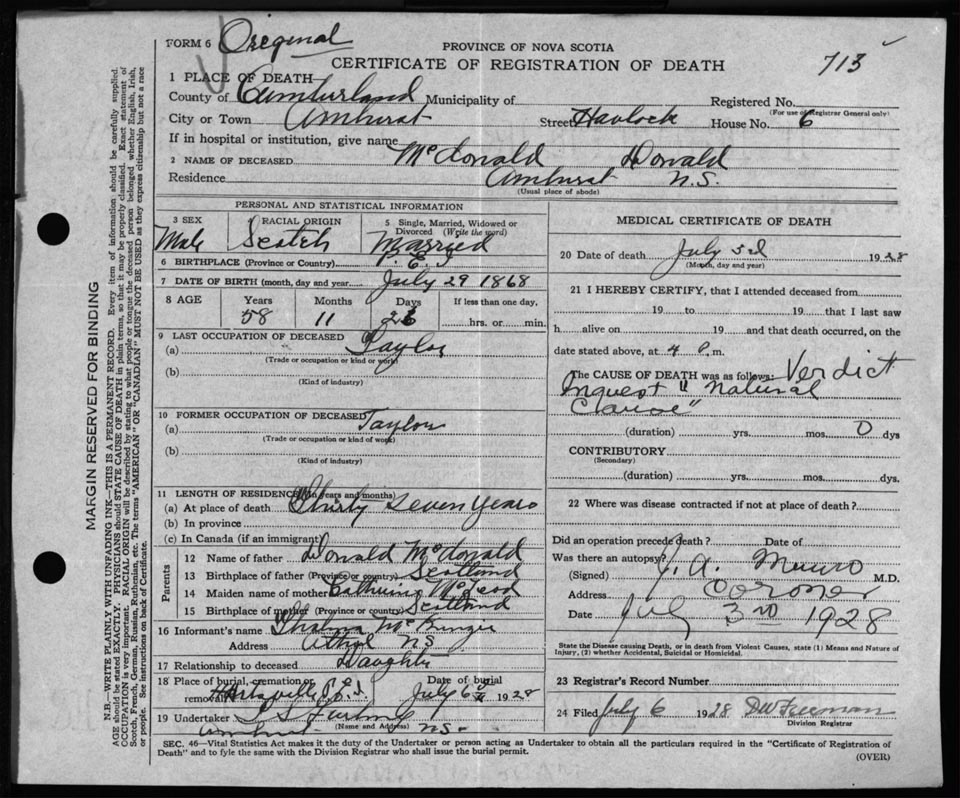 FORM 6 Oreginal
PROVINCE OF NOVA SCOTIA
CERTIFICATE OF REGISTRATION OF DEATH 713
1 PLACE OF DEATH
County of Cumberland Municipality of Registered No.
(For use of Registrar General only)
City or Town Amherst Street Havlock House No. 6
If in hospital or institution, give name
2 NAME OF DECEASED McDonald Donald
Residence Amherst N.S.
(Usual place of abode)
PERSONAL AND STATISTICAL INFORMATION
3 SEX 4 RACIAL ORIGIN 5 Single, Married, Widowed or Divorced (Write the word)
Male Scotch Married
6 BIRTHPLACE (Province or Country) P.E.I
7 DATE OF BIRTH (month, day and year) July 29 1868
8 AGE Years Months Days If less than one day,
58 11 hrs. or min.
9 LAST OCCUPATION OF DECEASED
(a) Taylor
(Trade or occupation or kind of work)
(b)
(Kind of industry)
10 FORMER OCCUPATION OF DECEASED
(a) Taylor
(Trade or occupation or kind of work)
(b)
(Kind of industry)
11 LENGTH OF RESIDENCE (in years and months)
(a) At place of death Thirty Seven Years
(b) In province
(c) In Canada (if an immigrant)
Parents
12 Name of father Donald McDonald
13 Birthplace of father (Province or country) Scotland
14 Maiden name of mother Catherine McLeod
15 Birthplace of mother (Province or country) Scotland
16 Informant's name Thelma McKenzie
Address Athol N.S.
17 Relationship to deceased Daughter
18 Place of burial, cremation or removal Date of burial
Hartsville P.E.I. July 6 1928
19 Undertaker
(Name and Address)
Amherst N.S.
MEDICAL CERTIFICATE OF DEATH
20 Date of death July 3d 1928
(Month, day and year)
21 I HEREBY CERTIFY, that I attended deceased from
19 to 19 that I last saw
h alive on 19 and that death occurred, on the
date stated above, at 4 P. m.
The CAUSE OF DEATH was as follows: Verdict
Inquest "Natural
Clause"
(duration) yrs. mos. 0 dys
CONTRIBUTORY
(Secondary)
(duration) yrs. mos. dys.
22 Where was disease contracted if not at place of death?
Did an operation precede death? Date of
Was there an autopsy?
(Signed) J. A. Munro M.D.
Address Coroner
Date July 3rd 1928
State the Disease causing Death, or in death from Violent Causes, state (1) Means and Nature of
Injury, (2) whether Accidental, Suicidal or Homicidal.
23 Registrar's Record Number
24 Filed July 6 1928 DW Freeman
Division Registrar
SEC. 46—Vital Statistics Act makes it the duty of the Undertaker or person acting as Undertaker to obtain all the particulars required in the "Certificate of Registration of
Death" and to fyle the same with the Division Registrar who shall issue the burial permit. (OVER)
MARGIN RESERVED FOR BINDING
N.B.—WRITE PLAINLY WITH UNFADING INK—THIS IS A PERMANENT RECORD. Every item of information should be carefully supplied.
AGE should be stated EXACTLY. PHYSICIANS should STATE CAUSE OF DEATH in plain terms, so that it may be properly classified. Exact statement of
OCCUPATION is very important. RACIAL ORIGIN will be described by stating to what people or tongue the deceased person belonged whether English, Irish,
Scotch, French, German, Russian, Ruthenian, etc. The terms "AMERICAN" OR "CANADIAN" MUST NOT BE USED as they express citizenship but not a race
or people. See instructions on back of Certificate.